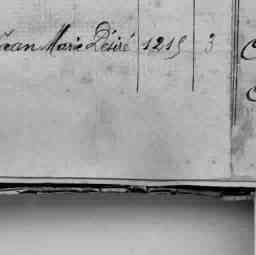 Jean Marie Désiré 1215 3